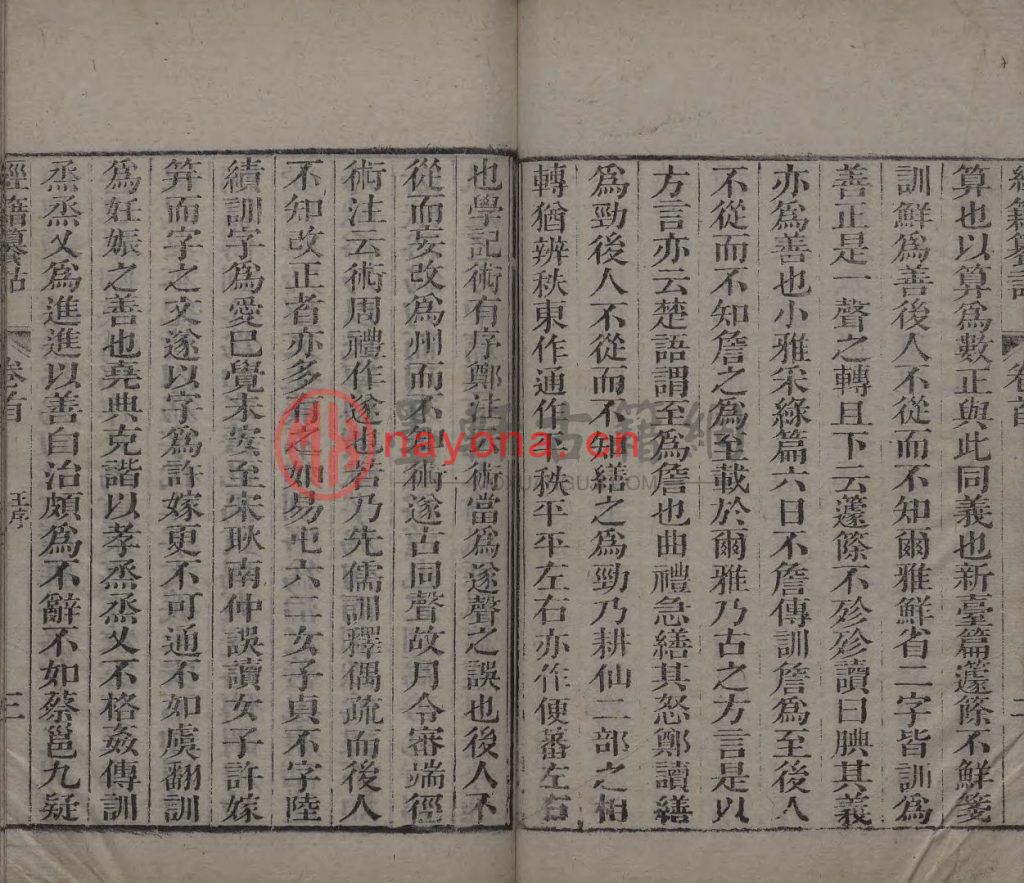 經籍籑詁 卷首 二
算也以算爲數正與此同義也新臺篇籧篨不鮮箋
訓鮮爲善後人不從而不知爾雅鮮省二字皆訓爲
善正是一聲之轉且下云籧篨不殄殄讀曰腆其義
亦爲善也小雅采綠篇六日不詹傳訓詹爲至後人
不從而不知詹之爲至載於爾雅乃古之方言是以
方言亦云楚語謂至爲詹也曲禮急繕其怒鄭讀繕
爲勁後人不從而不知繕之爲勁乃耕仙二部之相
轉猶辨秩東作通作平秩平平左右亦作便蕃左右
也學記術有序鄭注術當爲遂聲之誤也後人不
從而妄改爲州而不知術遂古同聲故月令審端徑
術注云術周禮作遂也若乃先儒訓釋偶疏而後人
不知改正者亦多有之如易屯六二女子貞不字陸
績訓字爲愛已覺未安至宋耿南仲誤讀女子許嫁
笄而字之文遂以字爲許嫁更不可通不如虞翻訓
爲妊娠之善也堯典克諧以孝烝烝乂不格姦傳訓
烝烝乂爲進進以善自治頗爲不辭不如蔡邕九疑
經籍籑詁 卷首 王序 三
nayona.cn